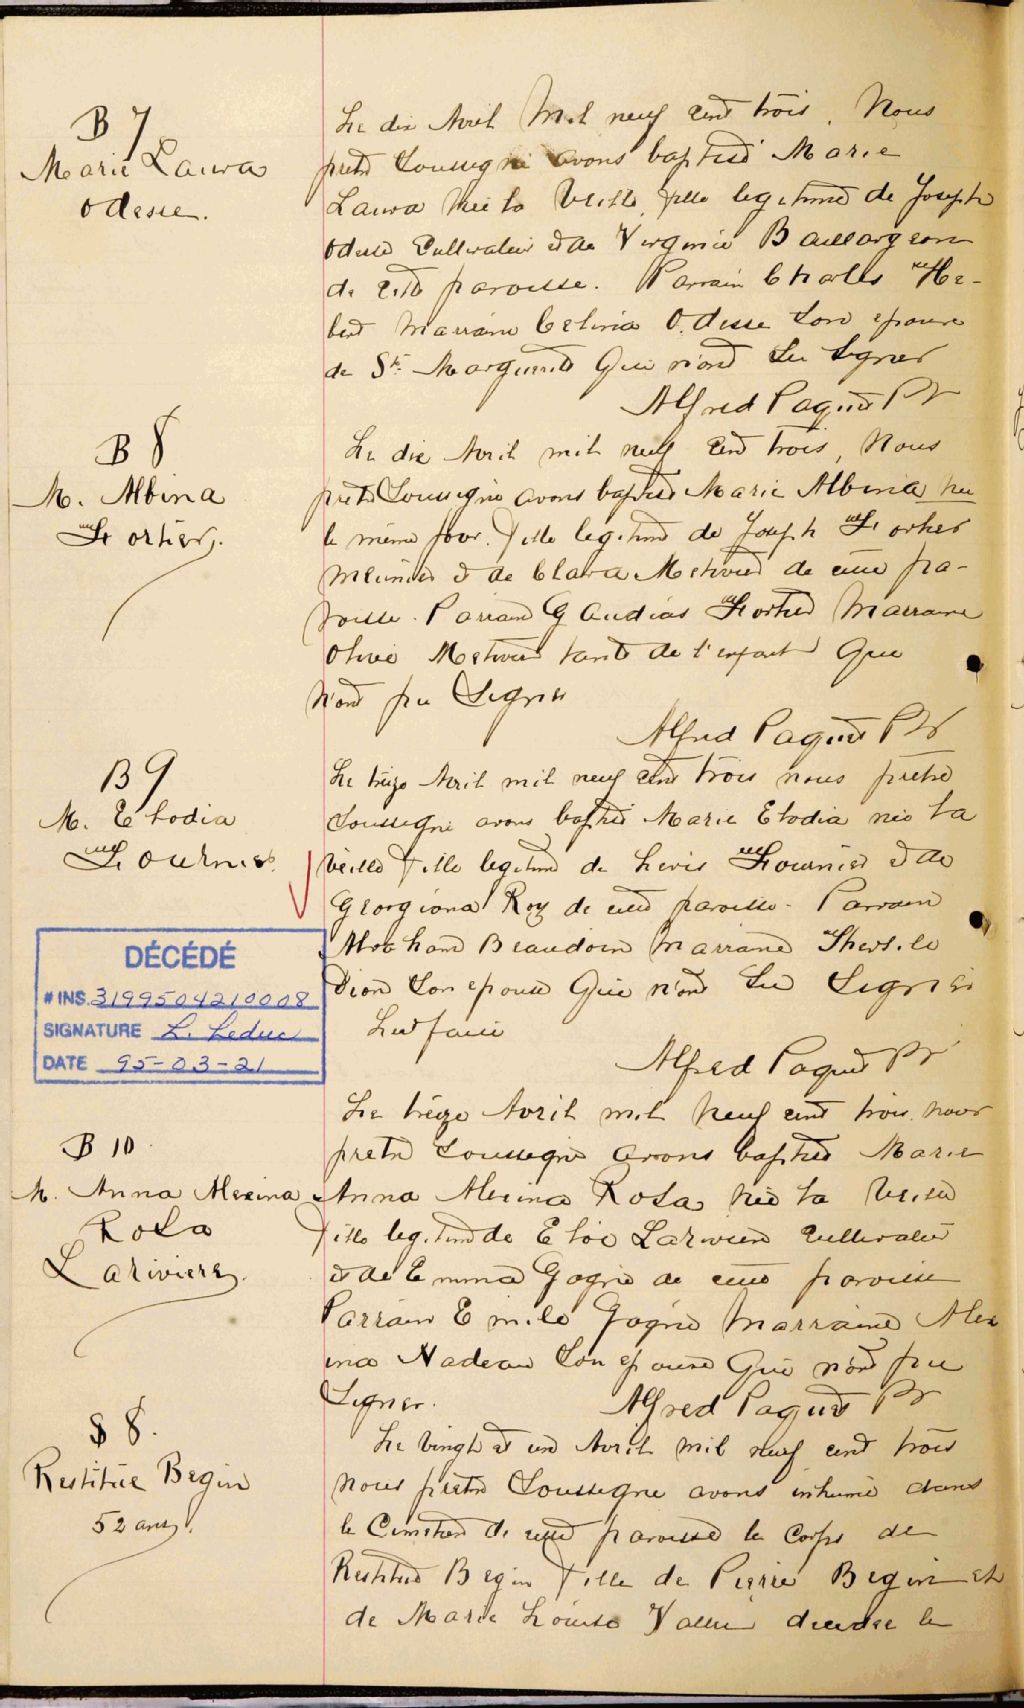 B 7
Marie Laura
Odesse.
Le dix Avril Mil neuf cent trois, Nous
pretre Soussigné avons baptisé Marie
Laura Née la Veille fille legitime de Joseph
Odesse Cultivateur et de Virginie Baillargeon
de cette paroisse. Parrain Charles He-
bert Marraine Celinia Odesse Son epouse
de Ste Marguerite Qui n'ont Su Signer
Alfred Paquet Ptr
B 8
M. Albina
Fortier.
Le dix Avril mil neuf cent trois, Nous
pretre Soussigné avons baptisé Marie Albina née
le même jour. Fille legitime de Joseph Fortier
Meunier et de Clara Metivier de cette pa-
roisse. Parrain Gaudias Fortier Marraine
Olivie Metivier tante de l'enfant Qui
N'ont pu Signer
Alfred Paquet Ptr
B 9
M. Elodia
Fournier.
Le treize Avril mil neuf cent trois nous pretre
Soussigné avons baptisé Marie Elodia née la
veille Fille legitime de Levis Fournier et de
Georgiana Roy de cette paroisse. Parrain
Beaudoin Marraine
Dion Son epouse Qui n'ont Su Signer
Alfred Paquet Ptr
DÉCÉDÉ
# INS. 3199504210008
SIGNATURE L. Leduc
DATE 95-03-21
B 10
M. Anna Alexina
Rosa
Lariviere.
Le treize Avril mil Neuf cent trois nous
pretre Soussigné avons baptisé Marie
Anna Alexina Rosa, Née la Veille
Fille legitime de Eloi Lariviere Cultivateur
et de Emma Gagné de cette paroisse
Parrain Emile Gagné Marraine Alex
ina Nadeau Son epouse Qui n'ont pu
Signer.
Alfred Paquet Ptr
S 8.
Restitue Begin
52 ans.
Le vingt et un Avril mil neuf cent trois
nous pretre Soussigné avons inhumé dans
le Cimetiere de cette paroisse le Corps de
Restitue Begin Fille de Pierre Begin et
de Marie Louise Vallée decedee le